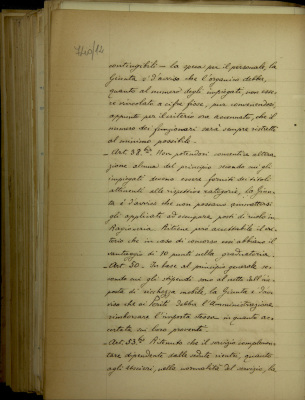 contingibili - la spesa per il personale, la
Giunta è d'avviso che l'organico debba,
quanto al numero degli impiegati, non esse-
re vincolato a cifre fisse, pur convenendo
appunto per il criterio ora accennato, che il
numero dei funzionari sarà sempre ristretto
al minimo possibile.
- Art. 38.° Non potendosi consentire altera-
zione alcuna del principio secondo cui gli
impiegati devono essere forniti dei titoli
attinenti alle rispettive categorie, la Giun-
ta è d'avviso che non possano ammettersi
gli applicati ad occupare posti di ruolo in
Ragioneria. Ritiene però accettabile il cri-
terio che in caso di concorso essi abbiano il
vantaggio di 10 punti nella graduatoria.
- Art. 50.- In base al principio generale se-
condo cui gli stipendi sono al netto dell'im-
posta di ricchezza mobile, la Giunta è d'av-
viso che si debba l'Amministrazione
rimborsare l'imposta stessa in quanto ac-
certata sui loro proventi.
- Art. 53.° Ritenuto che il servizio
dipendenti dalle sedute
agli uscieri, nella normalità del servizio, la